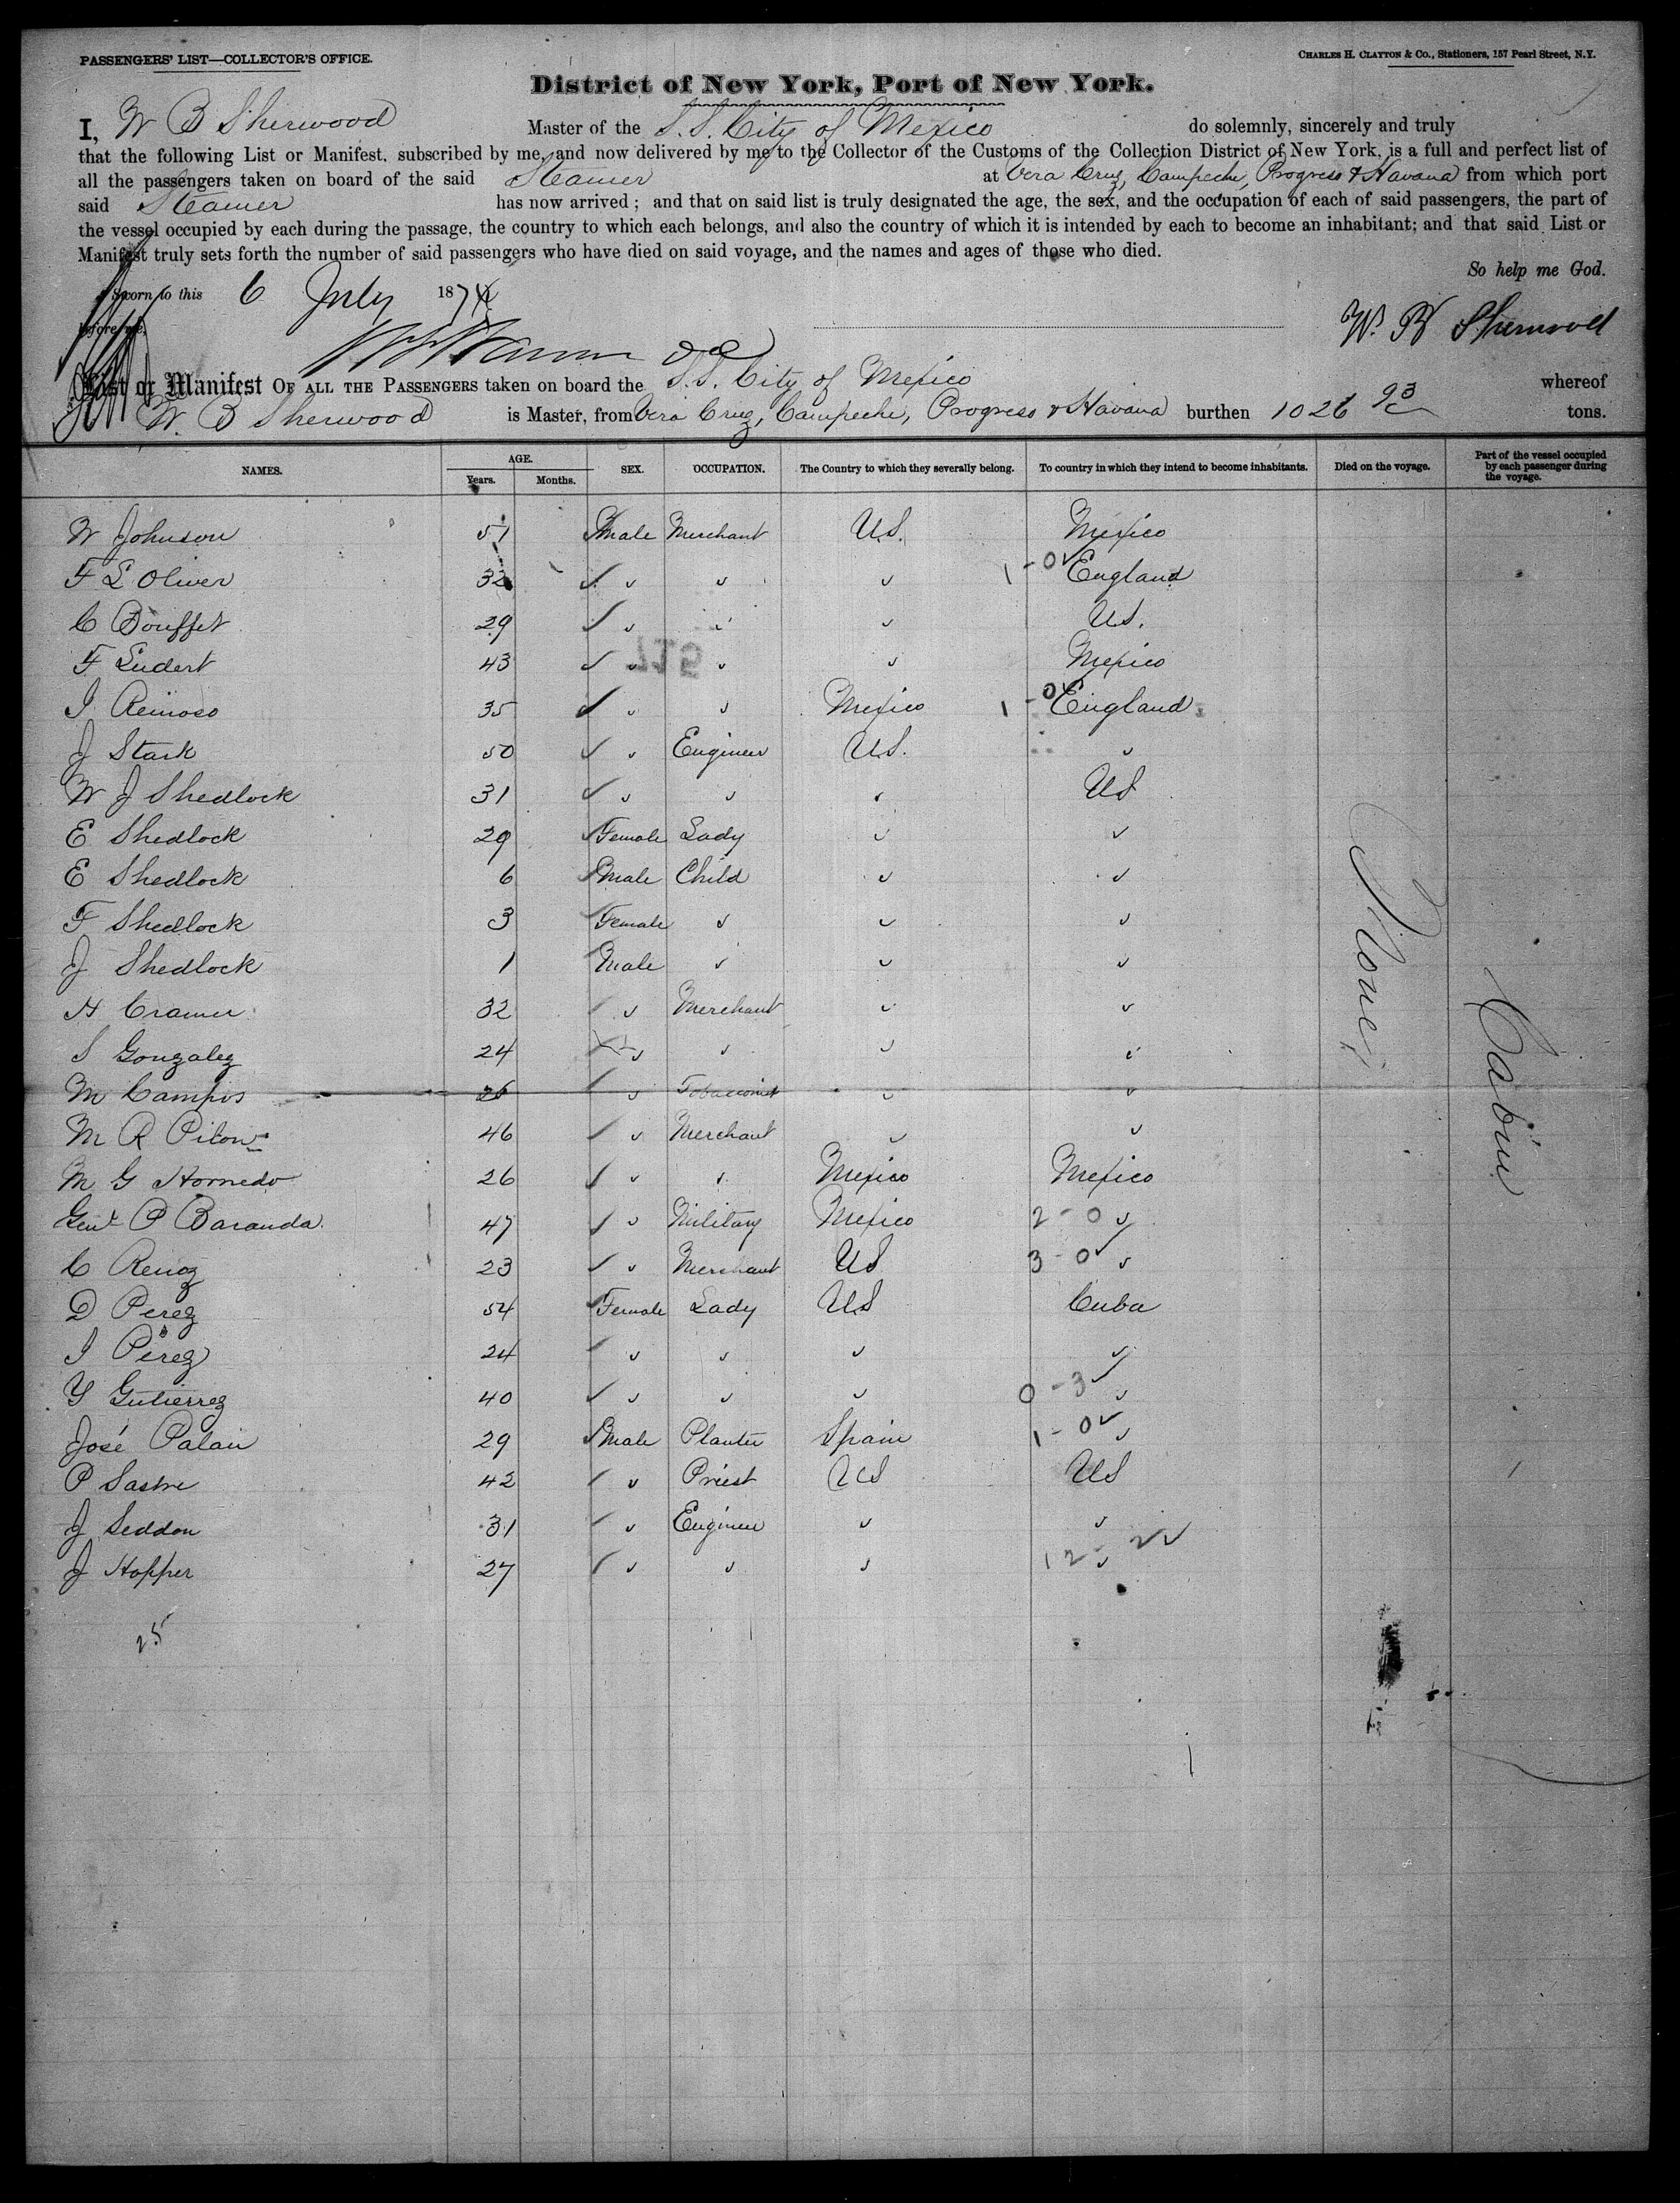 PASSENGERS' LIST—COLLECTOR'S OFFICE.
CHARLES H. CLAYTON & Co., Stationers, 157 Pearl Street, N.Y.
District of New York, Port of New York.
I, W B Sherwood Master of the S.S. City of Mexico do solemnly, sincerely and truly
that the following List or Manifest, subscribed by me, and now delivered by me to the Collector of the Customs of the Collection District of New York, is a full and perfect list of
all the passengers taken on board of the said Steamer at Vera Cruz, Campeche, Progreso & Havana from which port
said Steamer has now arrived; and that on said list is truly designated the age, the sex, and the occupation of each of said passengers, the part of
the vessel occupied by each during the passage, the country to which each belongs, and also the country of which it is intended by each to become an inhabitant; and that said List or
Manifest truly sets forth the number of said passengers who have died on said voyage, and the names and ages of those who died.
So help me God.
Sworn to this 6 July 187
before me, W. B Sherwood
List or Manifest OF ALL THE PASSENGERS taken on board the S.S. City of Mexico whereof
W. B Sherwood is Master, from Vera Cruz, Campeche, Progreso & Havana burthen 1026 93 tons.
NAMES. AGE. Years. Months. SEX. OCCUPATION. The Country to which they severally belong. To country in which they intend to become inhabitants. Died on the voyage. Part of the vessel occupied by each passenger during the voyage.
W Johnson 51 Male Merchant U.S. Mexico
F L Oliver 32 ✓ ✓ ✓ 1-0 England
C Bouffet 29 ✓ ✓ ✓ U.S.
F Ludert 43 ✓ ✓ ✓ Mexico
I Reinoso 35 ✓ ✓ Mexico 1-0 England
J Stark 50 ✓ Engineer U.S. ✓
W J Shedlock 31 ✓ ✓ ✓ US
E Shedlock 29 Female Lady ✓ ✓
E Shedlock 6 Male Child ✓ ✓
F Shedlock 3 Female ✓ ✓ ✓
J Shedlock 1 Male ✓ ✓ ✓
H Cramer 32 ✓ Merchant ✓ ✓
S Gonzalez 24 ✓ ✓ ✓ ✓
M Campos ✓ Tobacconist ✓ ✓
M R Piton 46 ✓ Merchant ✓ ✓
M G Hornedo 26 ✓ ✓ Mexico Mexico
Genl P Baranda 47 ✓ Military Mexico 2-0 ✓
C Renoz 23 ✓ Merchant US 3-0 ✓
D Perez 54 Female Lady US Cuba
I Perez 24 ✓ ✓ ✓ ✓
Y Gutierrez 40 ✓ ✓ ✓ 0-3 ✓
José Palau 29 Male Planter Spain 1-0 ✓
P Sastre 42 ✓ Priest US US
J Seddon 31 ✓ Engineer ✓ ✓
J Hopper 27 ✓ ✓ ✓ 12-2 ✓
25
None
Cabin